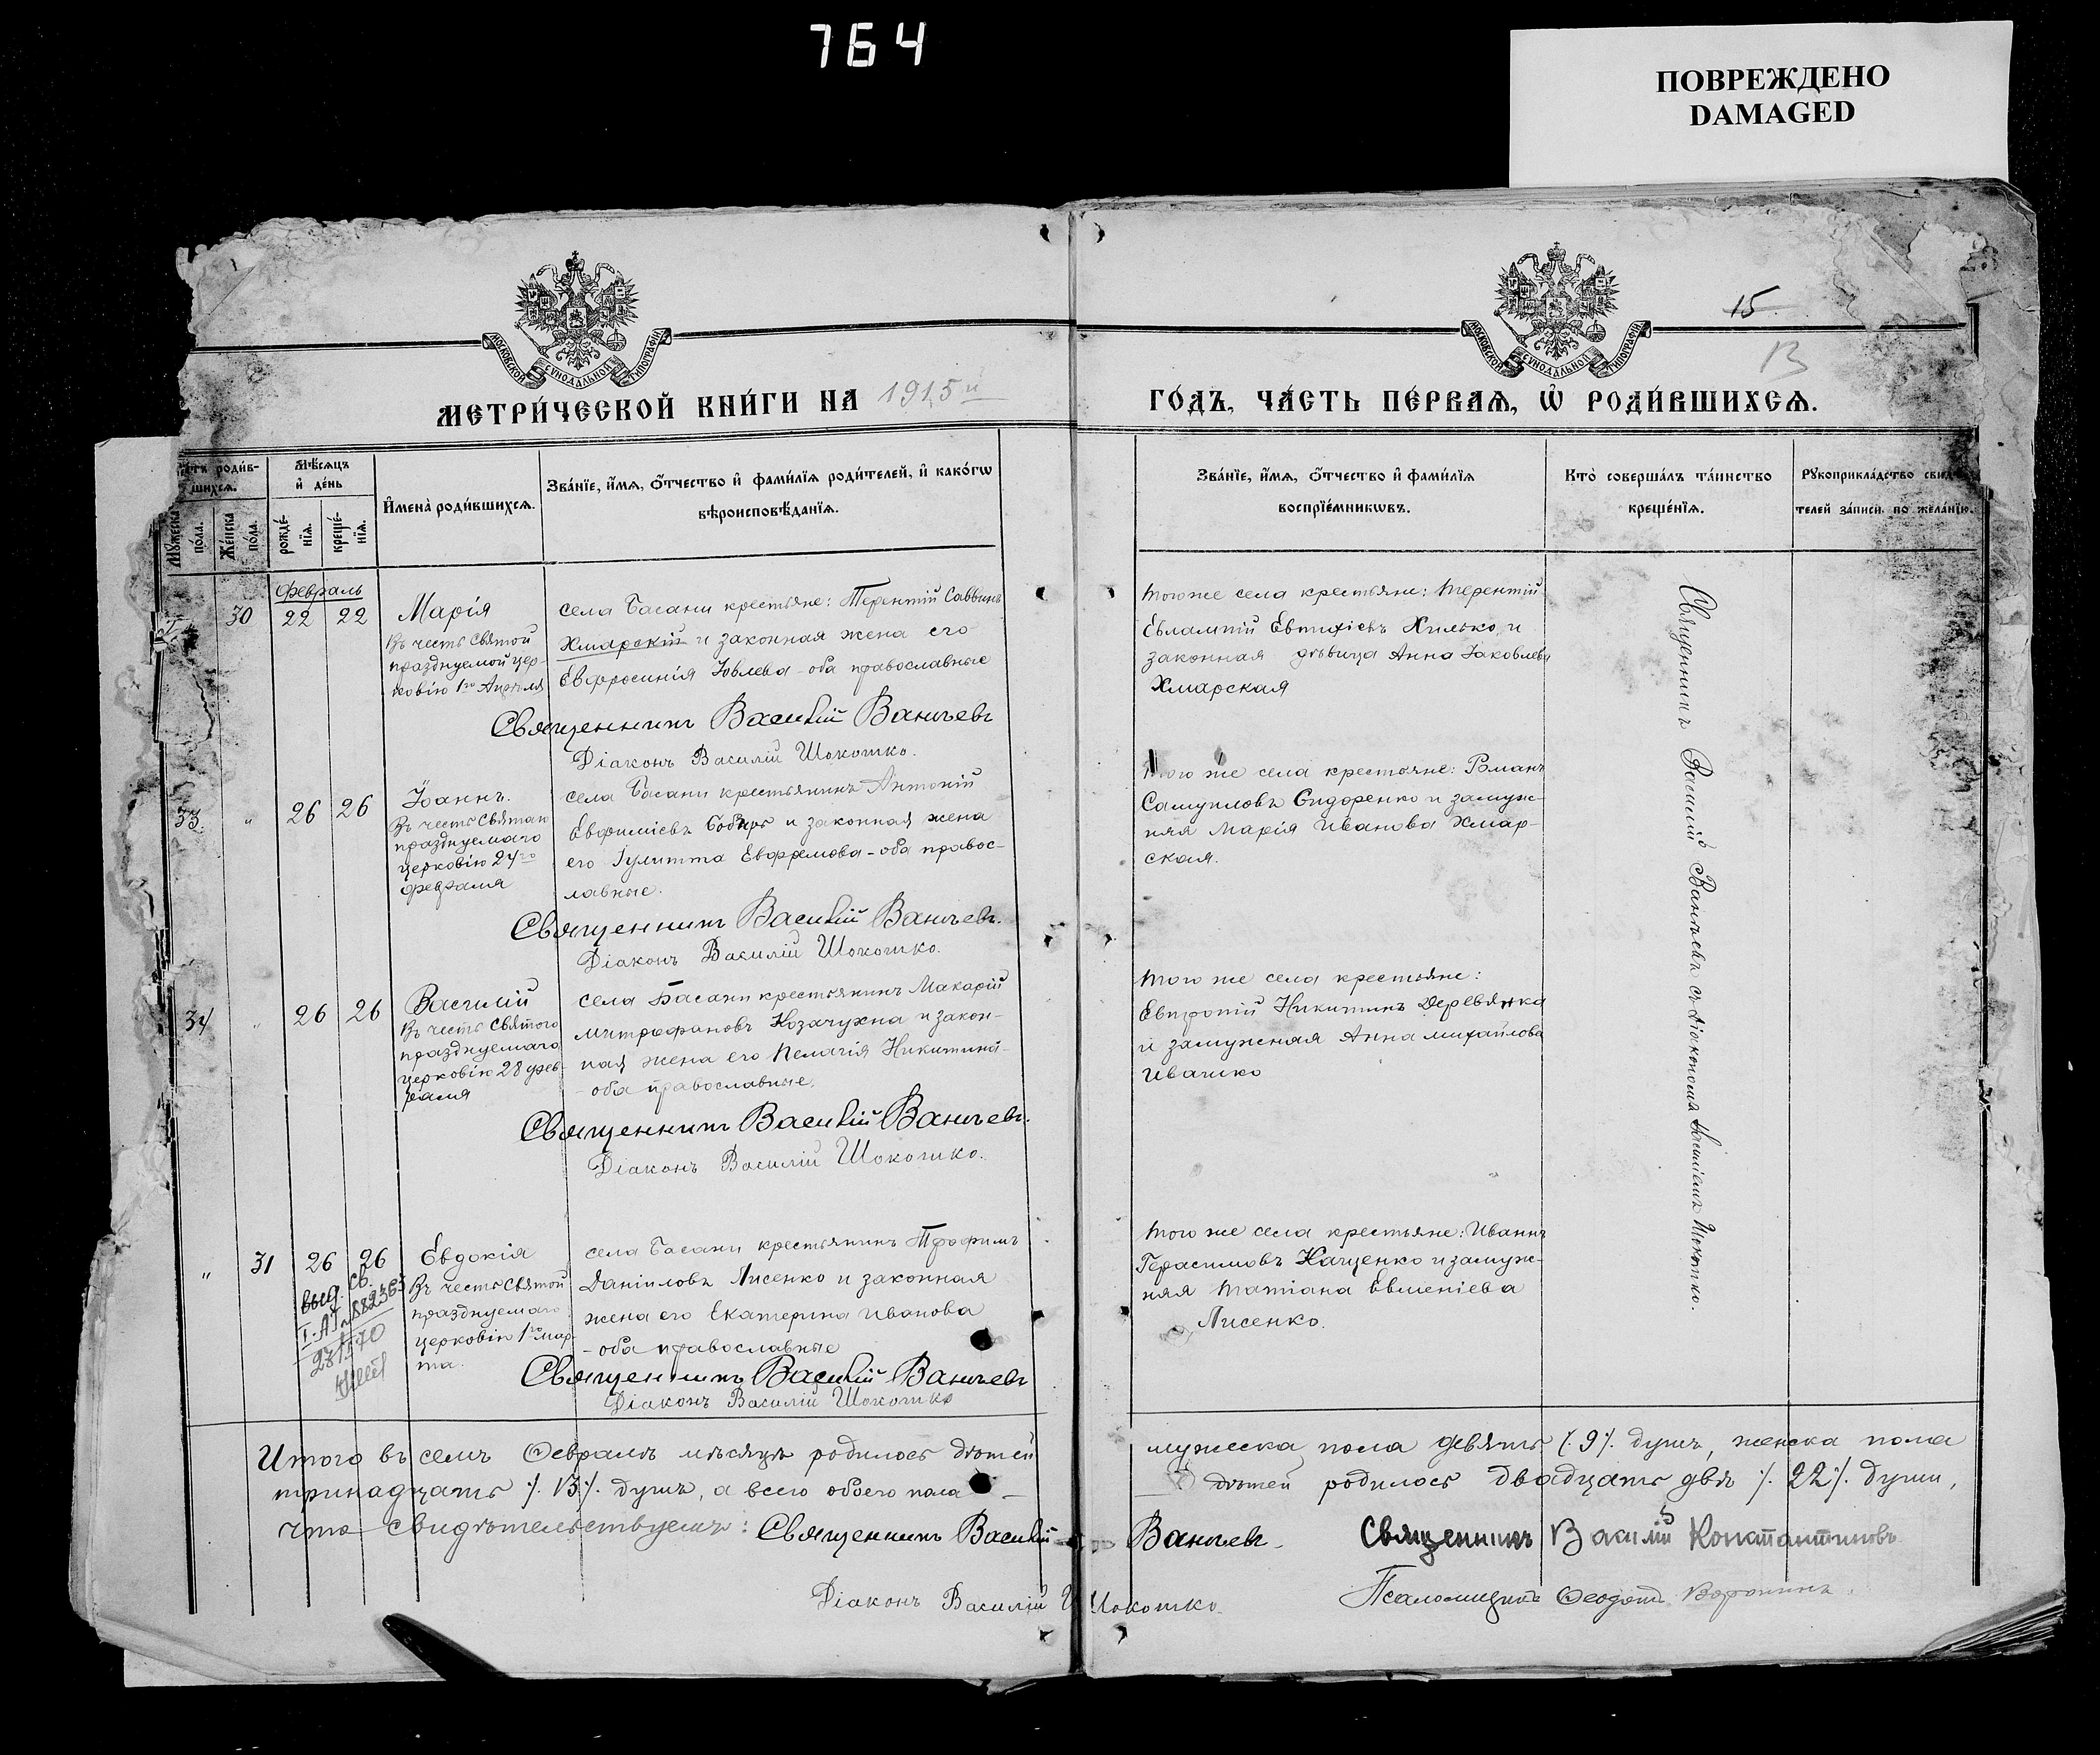 764
ПОВРЕЖДЕНО
DAMAGED
МОСКОВСКОЙ СУНОДАЛЬНОЙ ТИПОГРАФІИ
МОСКОВСКОЙ СУНОДАЛЬНОЙ ТИПОГРАФІИ
15
13
МЕТРИ́ЧЕСКОЙ КНИ́ГИ НА 1915 й
ГО́ДЪ, ЧА́СТЬ ПЕ́РВАѦ, Ѡ҆ РОДИ́ВШИХСѦ.
роди́в-
шихсѧ.
Мѣ́сѧцъ
и҆ де́нь
Мꙋ́жеска по́ла.
Же́нска по́ла.
рожде́-
нїѧ.
креще́-
нїѧ.
И҆мена̀ роди́вшихсѧ.
Зва́нїе, и҆́мѧ, ѻ҆́тчество и҆ фами́лїѧ роди́телей, и҆ како́гѡ
вѣроисповѣ́данїѧ.
Зва́нїе, и҆́мѧ, ѻ҆́тчество и҆ фами́лїѧ
воспрїе́мникѡвъ.
Кто̀ соверша́лъ та́инство
креще́нїѧ.
Рꙋкоприкла́дство
телей за́писи по жела́нїю.
Февраль
30 22 22
Марія
Въ честь святой
празднуемой цер-
ковію 1го Апрѣля
села Басани крестьяне: Терентій Саввинъ
Хмарскій и законная жена его
Евфросинія Іовлева - оба православные
Священникъ Василій Ваничевъ
Діаконъ Василій Шокотко.
того же села крестьяне: Терентій
Евлампій Евтихіевъ Хилько и
законная дѣвица Анна Іаковлева
Хмарская
33. " 26 26
Іоаннъ.
Въ честь святаго
празднуемаго
церковію 24го
февраля
села Басани крестьянинъ Антоній
Евфиміевъ и законная жена
его Іулитта Ефремова - оба правос-
лавные.
Священникъ Василій Ваничевъ.
Діаконъ Василій Шокотко.
того же села крестьяне: Романъ
Самуиловъ Сидоренко и замуж-
няя Марія Иванова Хмар-
ская.
34 " 26 26
Василій
Въ честь святого
празднуемаго
церковію 28 фев-
раля
села Басани крестьянинъ Макарій
Митрофановъ Козачухна и закон-
ная жена его Пелагія Никитина -
- оба православные.
Священникъ Василій Ваничевъ.
Діаконъ Василій Шокотко.
того же села крестьяне:
Никитинъ Деревянка
и замужняя Анна Михайлова
Ивашко
" 31 26 26
выд. св.
I-АГ 882365
Евдокія
Въ честь святой
празднуемаго
церковію 1го мар-
та.
села Басани крестьянинъ Трофимъ
Даніиловъ Лисенко и законная
жена его Екатерина Иванова
- оба православные
Священникъ Василій Ваничевъ
Діаконъ Василій Шокотко
того же села крестьяне: Иванъ
Герасимовъ Кащенко и замуж-
няя Татіана Евгеніева
Лисенко.
Священникъ Василій Ваничевъ съ діакономъ Василіемъ Шокотко.
Итого въ семъ Февралѣ мѣсяцѣ родилось дѣтей мужеска пола девять /. 9 /. душъ, женска пола
тринадцать /. 13 /. душъ, а всего обоего пола — дѣтей родилось двадцать двѣ /. 22 /. души,
что свидѣтельствуемъ: Священникъ Василій Ваничевъ. Священникъ Василій Константиновъ.
Діаконъ Василій Шокотко. Псаломщикъ Воронинъ.